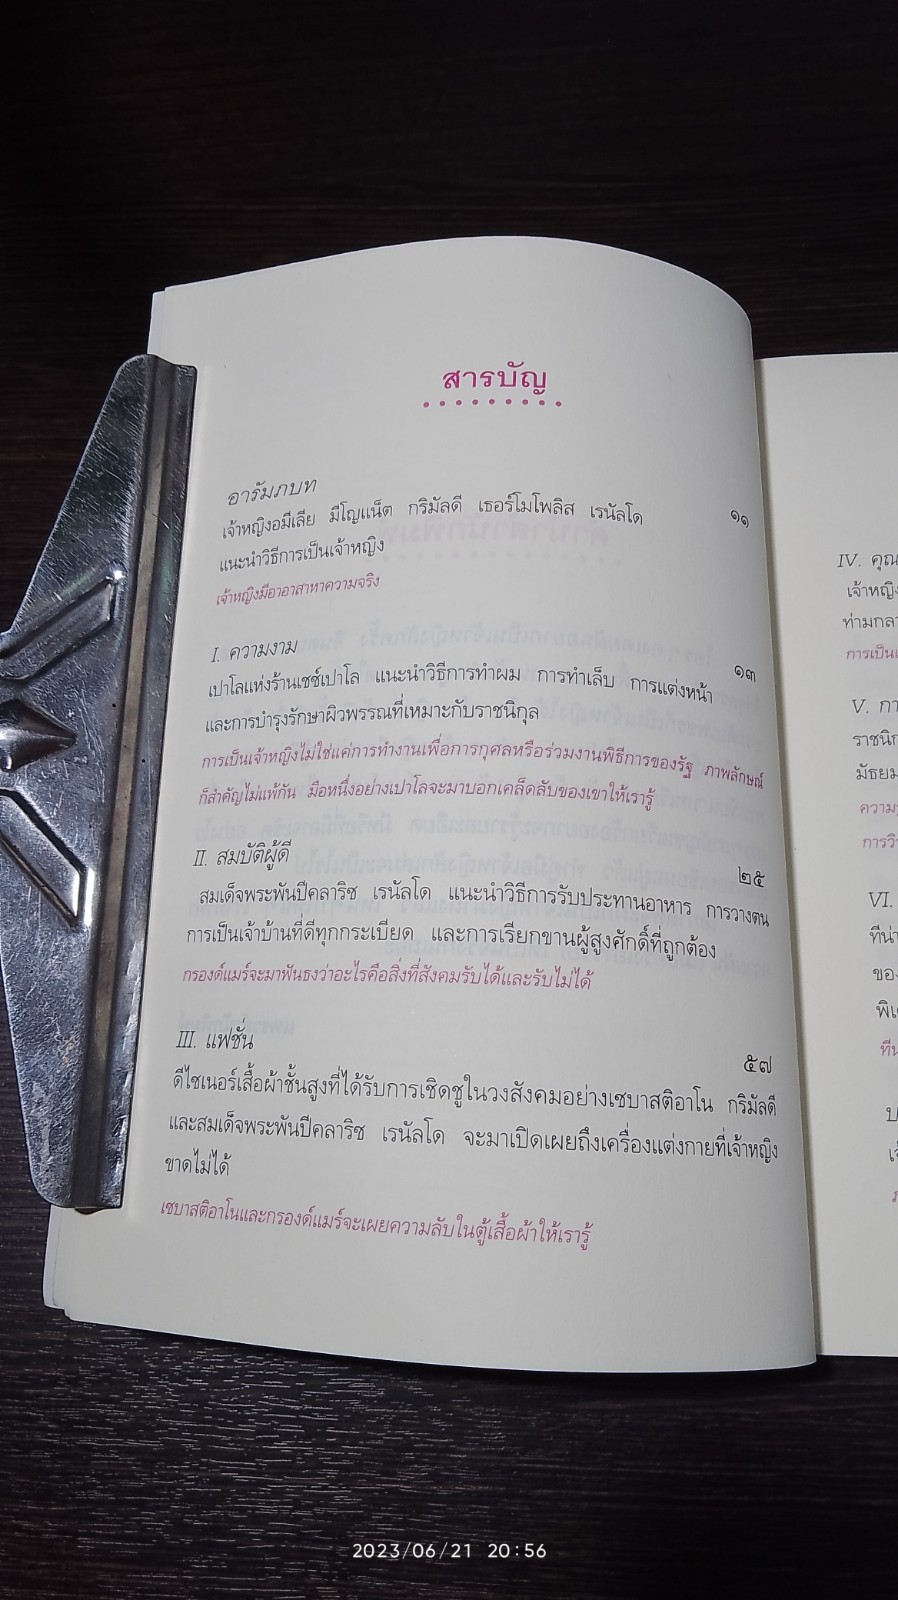 สารบัญ
อารัมภบท
เจ้าหญิงอมีเลีย มีโญแน็ต กริมัลดี เธอร์โมโพลิส เรนัลโด ๑๑
แนะนำวิธีการเป็นเจ้าหญิง
เจ้าหญิงมีอาอาสาหาความจริง
I. ความงาม ๑๓
เปาโลแห่งร้านเชซ์เปาโล แนะนำวิธีการทำผม การทำเล็บ การแต่งหน้า
และการบำรุงรักษาผิวพรรณที่เหมาะกับราชนิกุล
การเป็นเจ้าหญิงไม่ใช่แค่การทำงานเพื่อการกุศลหรือร่วมงานพิธีการของรัฐ ภาพลักษณ์
ก็สำคัญไม่แพ้กัน มือหนึ่งอย่างเปาโลจะมาบอกเคล็ดลับของเขาให้เรารู้
II. สมบัติผู้ดี ๒๕
สมเด็จพระพันปีคลาริซ เรนัลโด แนะนำวิธีการรับประทานอาหาร การวางตน
การเป็นเจ้าบ้านที่ดีทุกกระเบียด และการเรียกขานผู้สูงศักดิ์ที่ถูกต้อง
กรองด์แมร์จะมาฟันธงว่าอะไรคือสิ่งที่สังคมรับได้และรับไม่ได้
III. แฟชั่น ๕๗
ดีไซเนอร์เสื้อผ้าชั้นสูงที่ได้รับการเชิดชูในวงสังคมอย่างเซบาสติอาโน กริมัลดี
และสมเด็จพระพันปีคลาริซ เรนัลโด จะมาเปิดเผยถึงเครื่องแต่งกายที่เจ้าหญิง
ขาดไม่ได้
เซบาสติอาโนและกรองด์แมร์จะเผยความลับในตู้เสื้อผ้าให้เรารู้
IV. คุณ
เจ้าหญิง
ท่ามกลา
การเป็น
V. กา
ราชนิก
มัธยม
ความ
การวิ
VI.
ทีน่า
ของ
พิเ
ทีน
2023/06/21 20:56